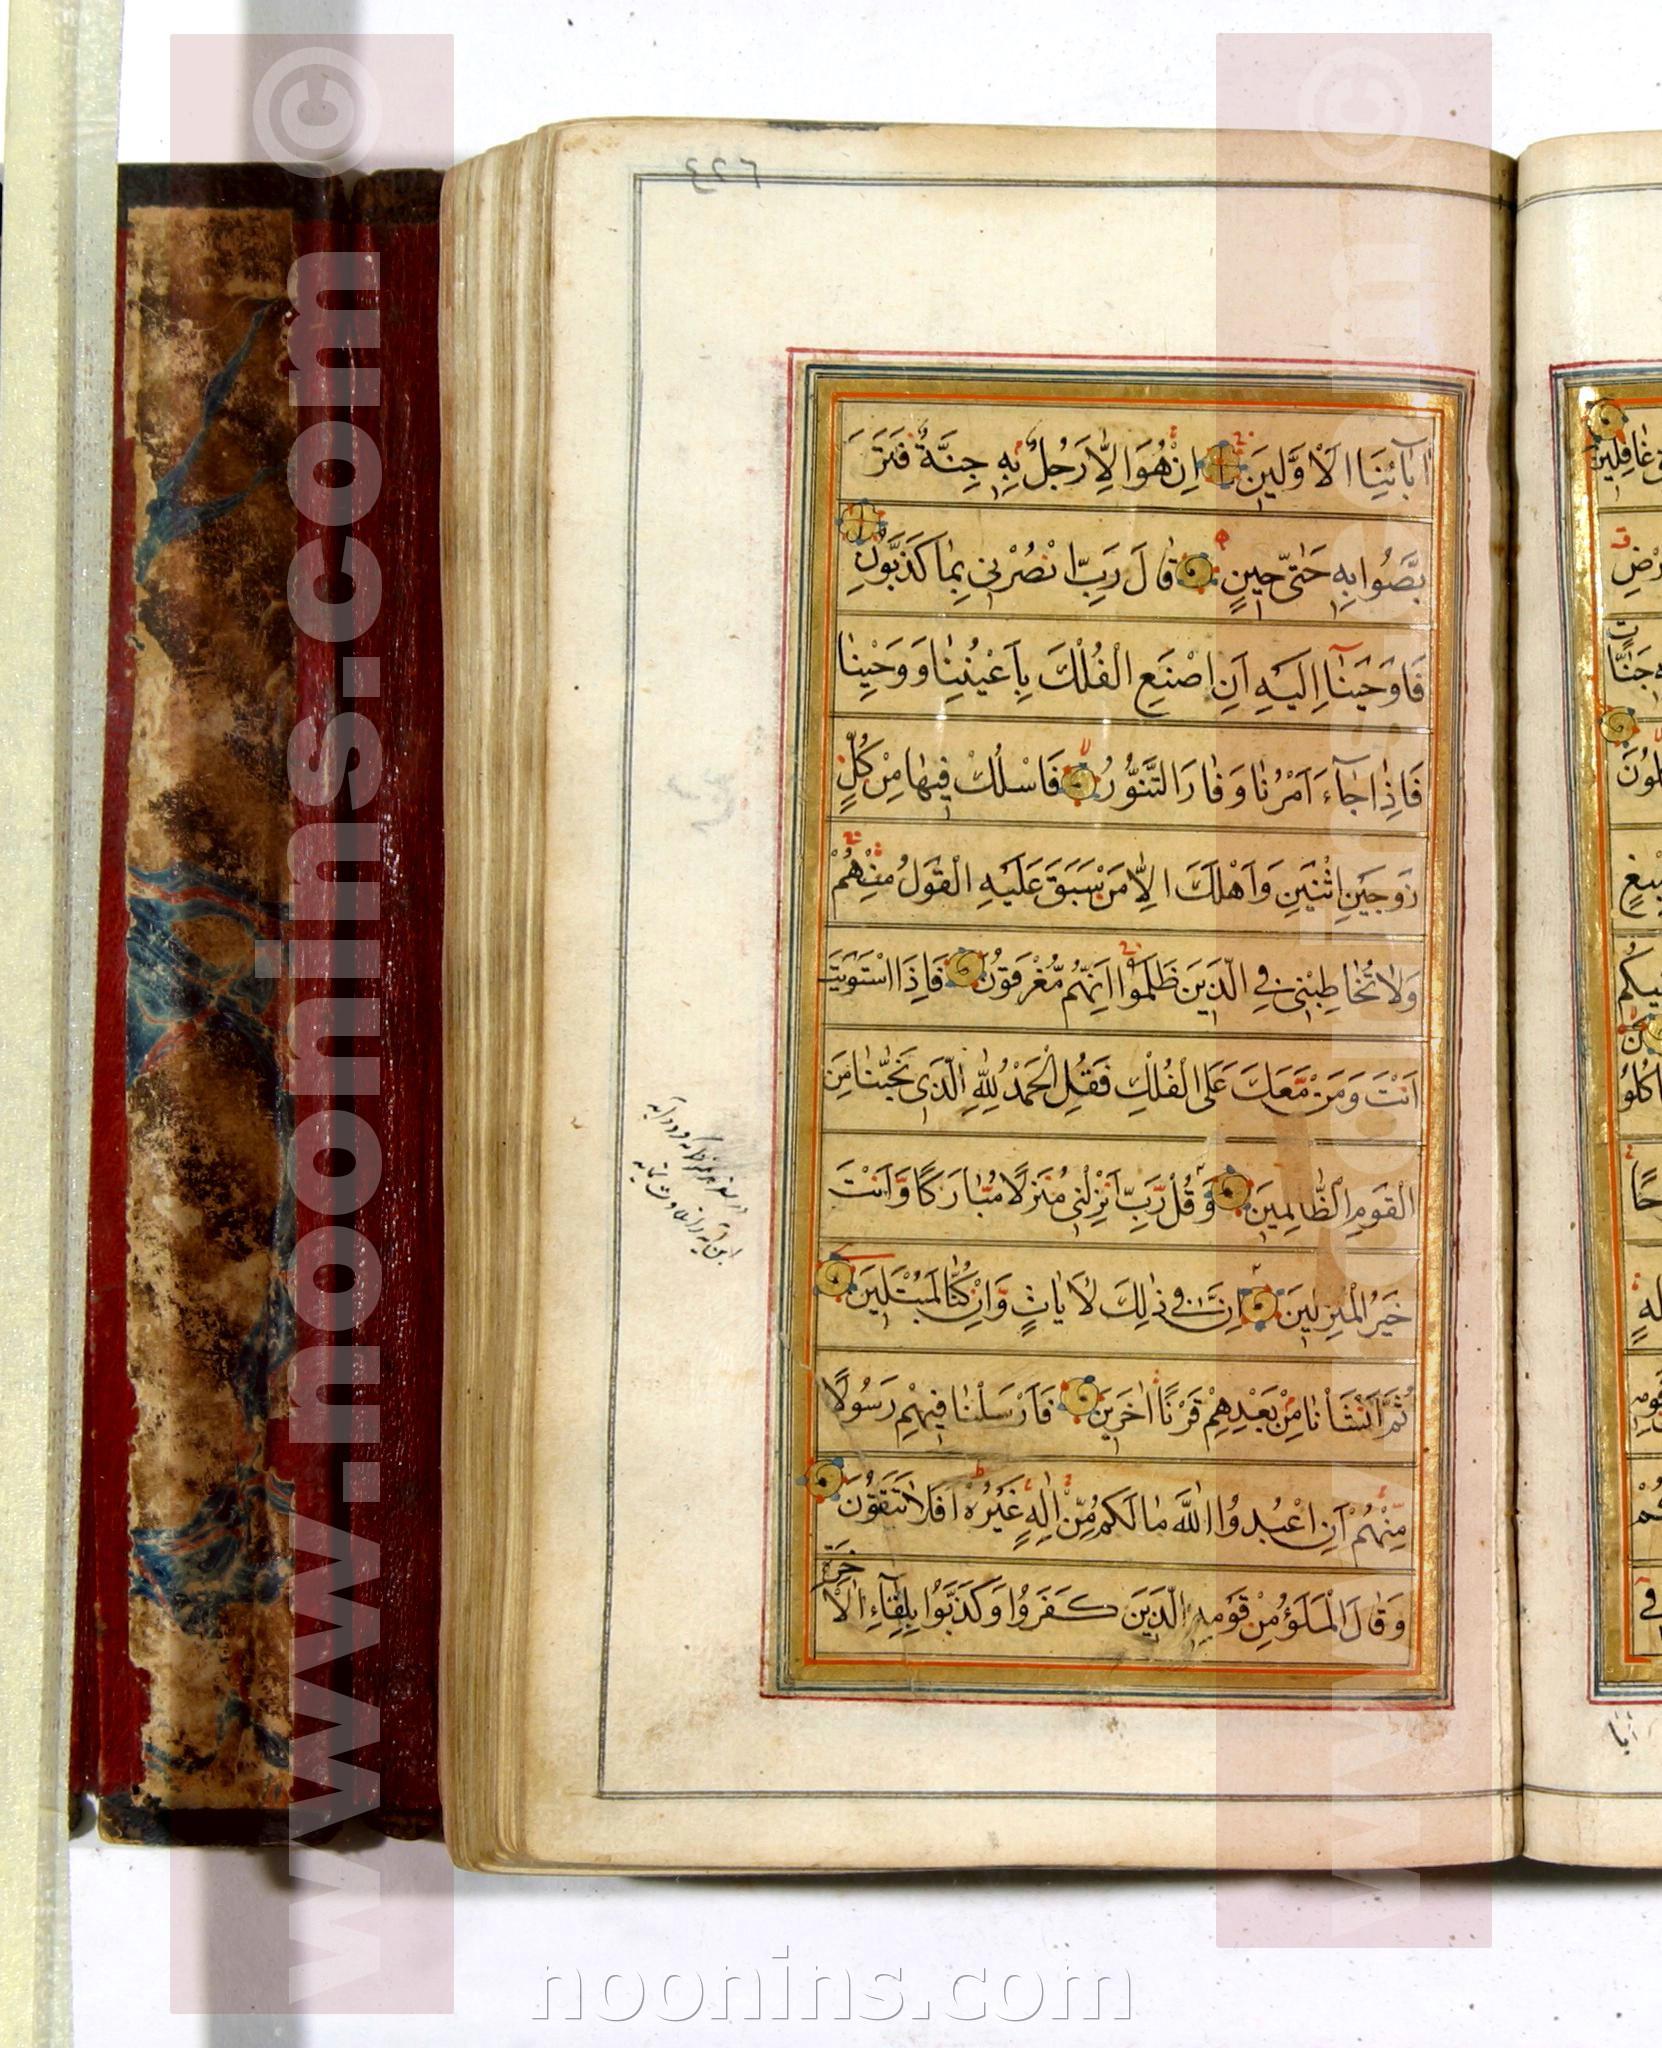 اٰبَآئِنَا الْاَوَّلینَ اِنْ هُوَ اِلَّا رَجُلٌ بِهِ جِنَّةٌ فَتَرَ
بَّصُوا بِهِ حَتّٰی حینٍ قٰالَ رَبِّ انْصُرْنی بِمٰا کَذَّبُونِ
فَاَوْحَیْنٰا اِلَیْهِ اَنِ اصْنَعِ الْفُلْكَ بِاَعْیُنِنٰا وَ وَحْیِنٰا
فَاِذٰا جٰآءَ اَمْرُنٰا وَ فٰارَ التَّنُّورُ فَاسْلُكْ فیهٰا مِنْ كُلٍّ
زَوْجَیْنِ اثْنَیْنِ وَ اَهْلَكَ اِلّٰا مَنْ سَبَقَ عَلَیْهِ الْقَوْلُ مِنْهُمْ
وَلٰا تُخٰاطِبْنی فِی الَّذینَ ظَلَمُوا اِنَّهُمْ مُغْرَقُونَ فَاِذَا اسْتَوَیْتَ
اَنْتَ وَ مَنْ مَعَكَ عَلَی الْفُلْكِ فَقُلِ الْحَمْدُ لِلّٰهِ الَّذی نَجّٰینٰا مِنَ
الْقَوْمِ الظّٰالِمینَ وَ قُلْ رَبِّ اَنْزِلْنی مُنْزَلًا مُبٰارَكًا وَ اَنْتَ
خَیْرُ الْمُنْزِلینَ اِنَّ فی ذٰلِكَ لَاٰیٰاتٍ وَ اِنْ كُنّٰا لَمُبْتَلینَ
ثُمَّ اَنْشَاْنٰا مِنْ بَعْدِهِمْ قَرْنًا اٰخَرینَ فَاَرْسَلْنٰا فیهِمْ رَسُولًا
مِنْهُمْ اَنِ اعْبُدُوا اللّٰهَ مٰا لَكُمْ مِنْ اِلٰهٍ غَیْرُهُ اَفَلٰا تَتَّقُونَ
وَ قٰالَ الْمَلَؤُ مِنْ قَوْمِهِ الَّذینَ كَفَرُوا وَ كَذَّبُوا بِلِقٰآءِ الْاٰ
خِرَةِ
www.noonins.com ©
www.noonins.com ©
noonins.com